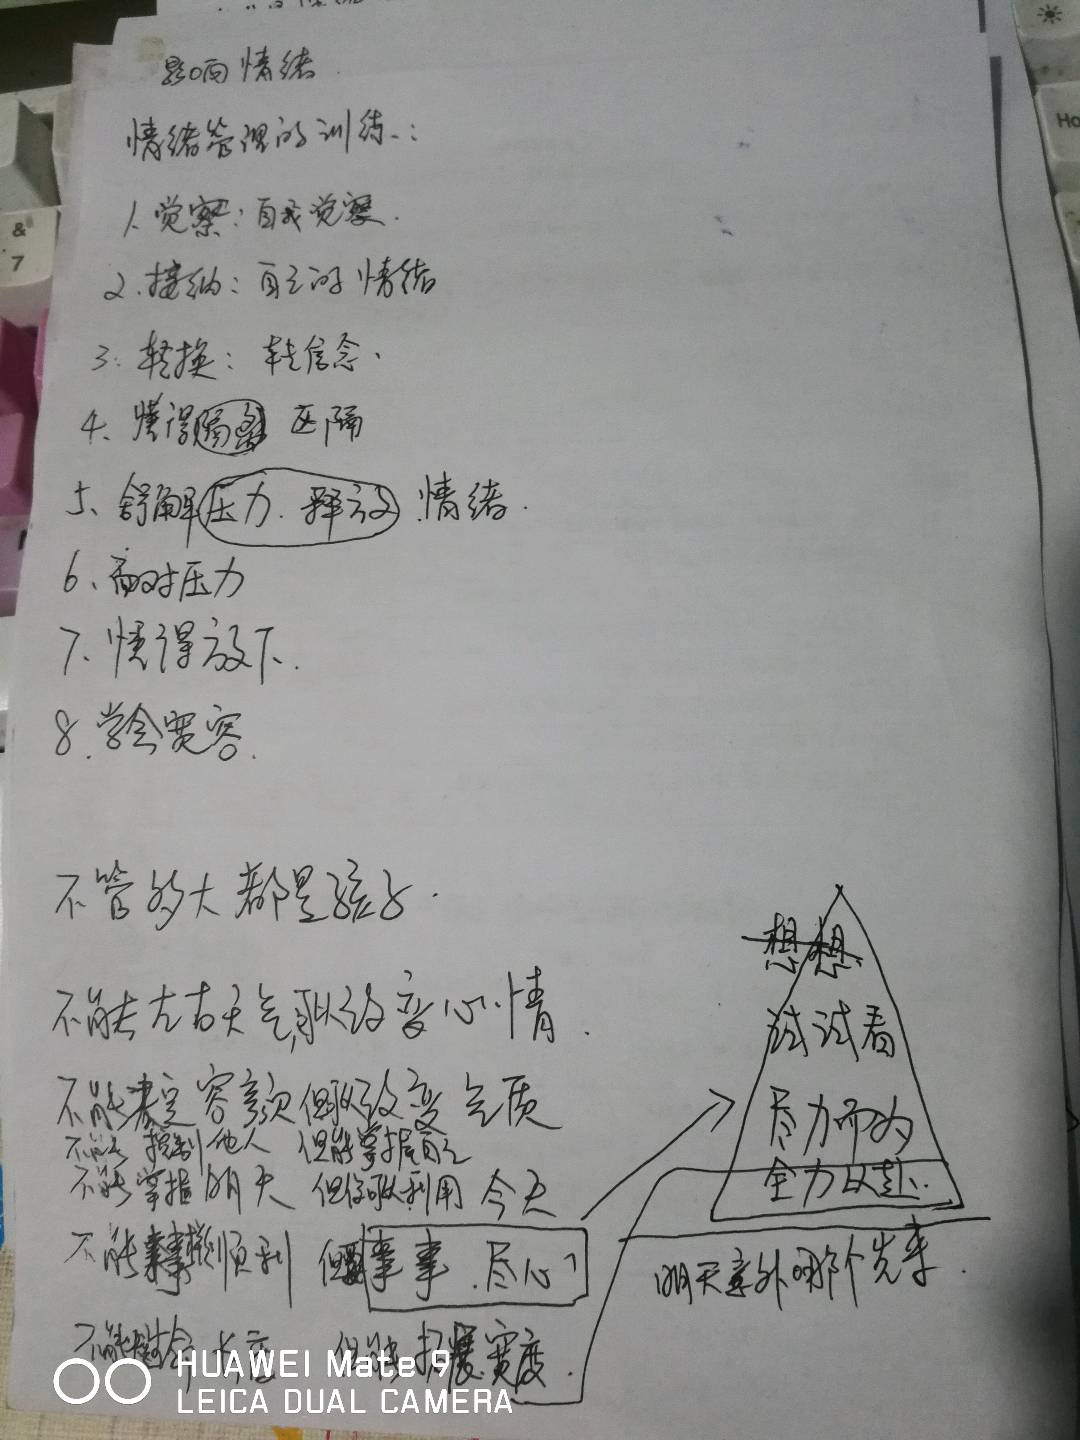 影响情绪
情绪管理的训练:
1.觉察:自我觉察.
2.接纳:自己的情绪
3.转换:转信念.
4、懂得隔离 区隔
5、舒解压力.释放.情绪.
6、面对压力
7、懂得放下.
8.学会宽容.
不管多大都是孩子.
不能左右天气,可以改变心情.
不能决定容颜但可以改变气质
不能控制他人 但能掌握自己
不能掌握明天 但你可以利用今天
不能事事顺利 但事事.尽心
不能 命长度 但能拓展宽度.
想想
试试看
尽力而为
全力以赴.
明天意外哪个先来.
&
7
Ho
HUAWEI Mate 9
LEICA DUAL CAMERA